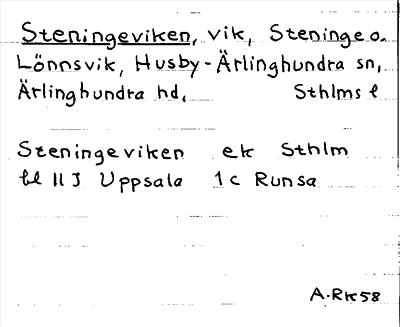 Steningeviken, vik, Steninge o.
Lönnsvik, Husby-Ärlinghundra sn,
Ärlinghundra hd, Sthlms l
Steningeviken ek Sthlm
bl 11 J Uppsala 1c Runsa
A.Rk 58